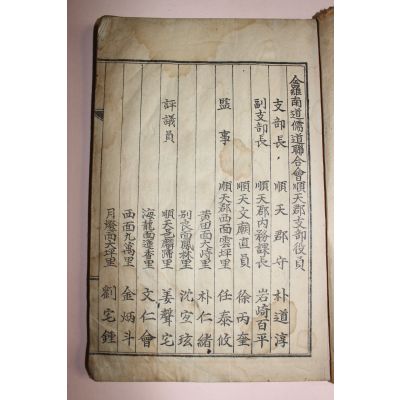 全羅南道儒道聯合會順天郡支部役員
支部長 順天郡守 朴道淳
副支部長 順天郡內務課長 岩崎百平
順天文廟直員 徐丙奎
監事 順天郡西面雲坪里 任泰攸
黃田面大峙里 朴仁緖
評議員 別良面鳳林里 沈宜玹
順天邑 姜聲宅
海龍面蓮香里 文仁會
西面九萬里 金炳斗
月燈面大坪里 劉宅鍾